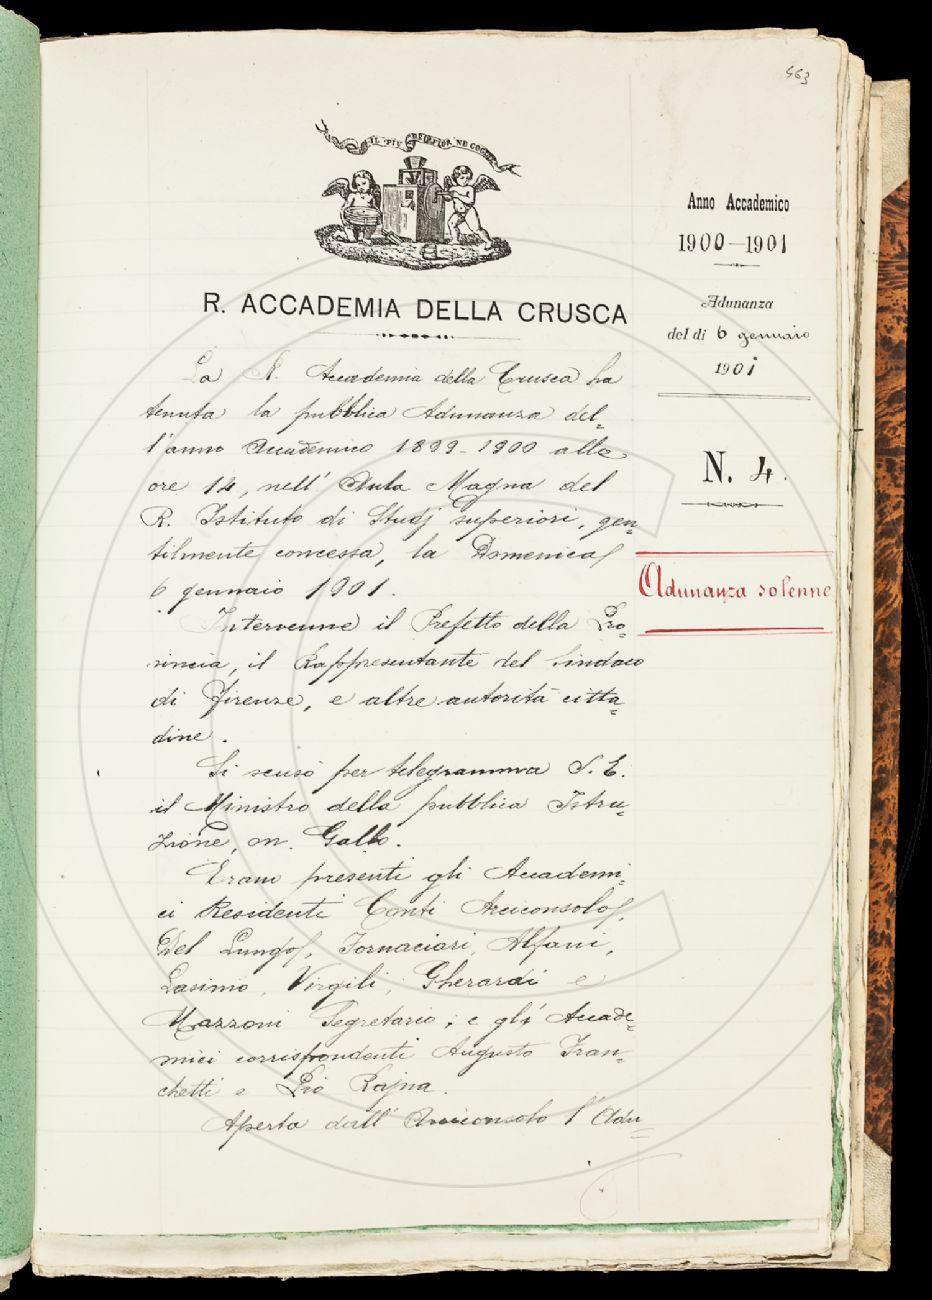 463
IL PIÙ BEL FIOR NE COGLIE
R. ACCADEMIA DELLA CRUSCA
Anno Accademico
1900-1901
Adunanza
del dì 6 gennaio
1901
N. 4.
Adunanza solenne
La R. Accademia della Crusca ha
tenuta la pubblica Adunanza del-
l'anno Accademico 1899-1900 alle
ore 14, nell'Aula Magna del
R. Istituto di Studj superiori, gen-
tilmente concessa, la Domenica
6 gennaio 1901.
Intervenne il Prefetto della Pro-
vincia, il Rappresentante del Sindaco
di Firenze, e altre autorità citta-
dine.
Si scusò per telegramma S. E.
il Ministro della pubblica Istru-
zione, on. Gallo.
Erano presenti gli Accademi-
ci Residenti Conti Arciconsolo,
Del Lungo, Fornaciari, Alfani,
Lasinio, Virgili, Gherardi e
Mazzoni Segretario; e gli Accade-
mici corrispondenti Augusto Fran-
chetti e Pio Rajna.
Aperta dall'Arciconsolo l'Adu-